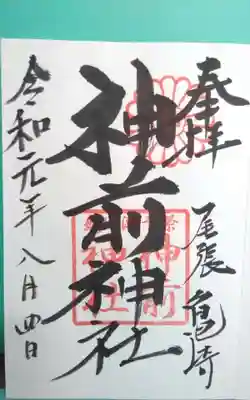 奉拝
尾張亀崎
神前神社
令和元年八月四日
神前
神社